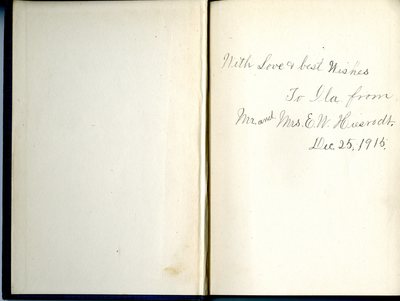 With Love & best Wishes
To Ila from
Mr. and Mrs. E. W.
Dec. 25, 1915.